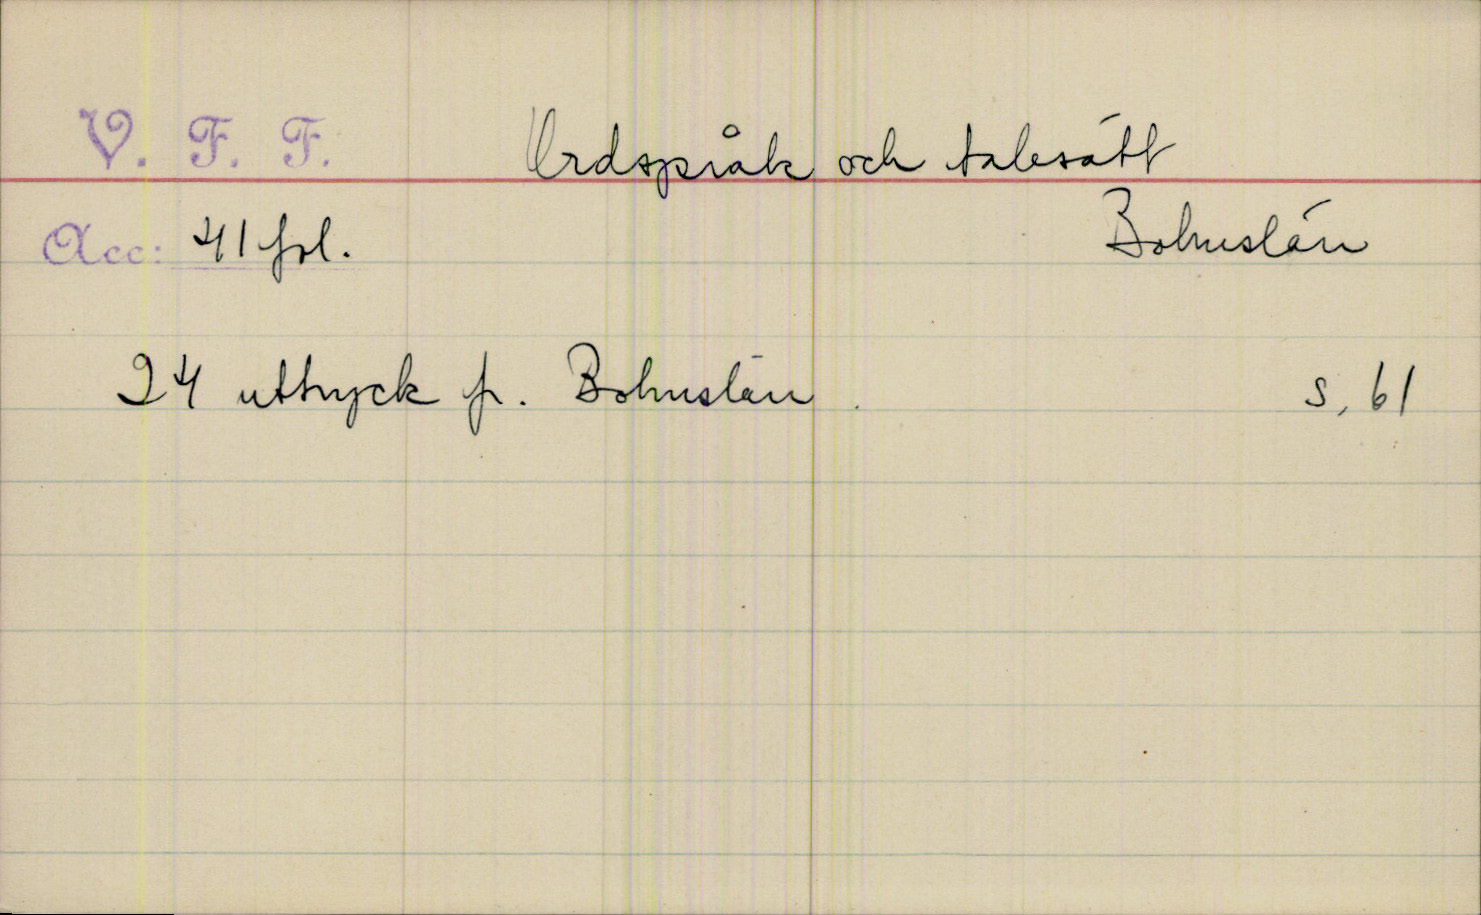 V. F. F. Ordspråk och talesätt
Acc: 41 fol. Bohuslän
24 uttryck fr. Bohuslän. s, 61